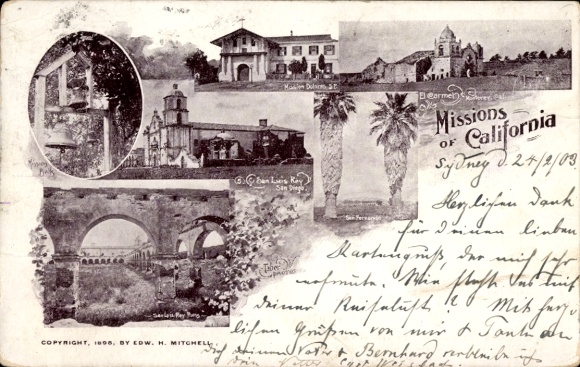 Mission Dolores, S.F.
El Carmel
MISSIONS
OF CALIFORNIA
San Luis Rey
San Diego
San Fernando
San Luis Rey Ruins
Sydney d. 24/2/03
Herzlichen Dank
für Deinen lieben
Kartengruß, der mich sehr
erfreute. Wie steht es mit
Deiner Reiselust? Mit herz-
lichen Grüßen von mir & Tante an
Dich Deinen Vater & Bernhard verbleibe ich
Dein Vetter Curt
COPYRIGHT, 1898, BY EDW. H. MITCHELL